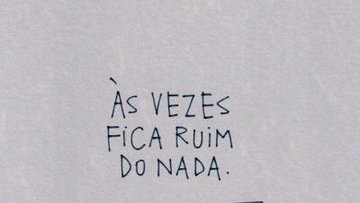 ÀS VEZES
FICA RUIM
DO NADA.